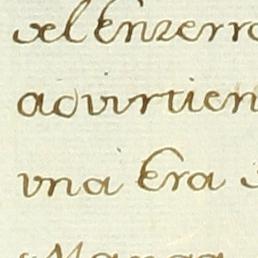 el Enzerro
advirtien
vna Era